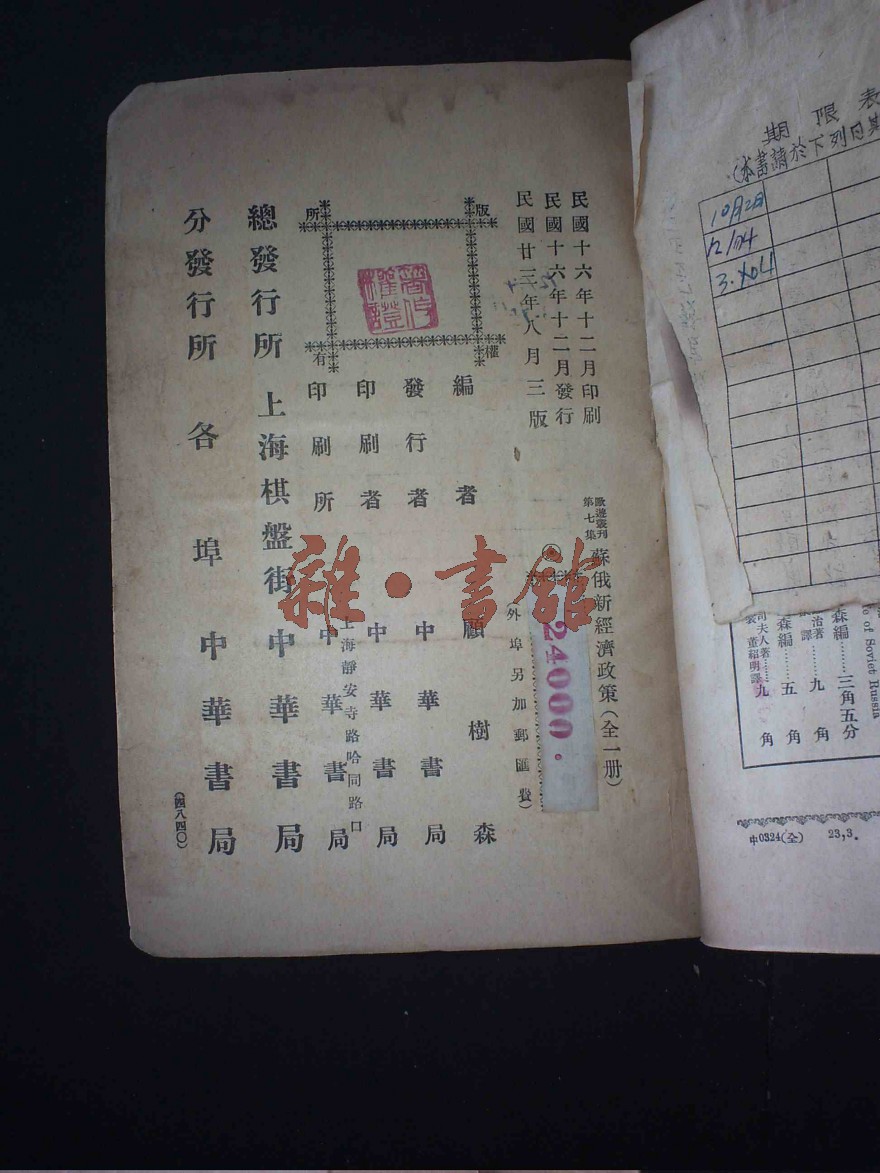 期限表
（本書請於下列日期
10月2日
12/04
3.X04
民國十六年十二月印刷
民國十六年十二月發行
民國廿三年八月三版
歐遊叢刊
第七集
蘇俄新經濟政策（全一册）
24000.
外埠另加郵匯費）
版權所有
著作權證
編者 顧樹森
發行者 中華書局
印刷者 中華書局
上海靜安寺路哈同路口
印刷所 中華書局
總發行所 上海棋盤街 中華書局
分發行所 各埠 中華書局
（四八四〇）
雜·書館
of Soviet Russia
森編……三角五分
治著……九角
譯
森編……五角
司夫人著……九角
董紹明譯
中0324(全) 23,3.